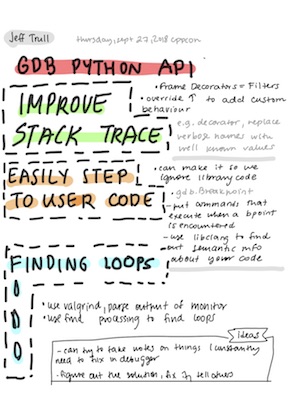 Jeff Trull
thursday, sept 27, 2018 cppcon
GDB PYTHON API
IMPROVE
STACK TRACE
• Frame Decorators = Filters
• override ↑ to add custom
behaviour
e.g. decorator, replace
verbose names with
well known values
EASILY STEP
TO USER CODE
• can make it so we
ignore library code
• gdb.Breakpoint
- put commands that
execute when a bpoint
is encountered
- use libclang to find
out semantic info
about your code
FINDING LOOPS
• use valgrind, parse output of monitor
• use find processing to find loops
Ideas
- can try to take notes on things I constantly
need to fix in debugger
- figure out the solution, fix it, tell others